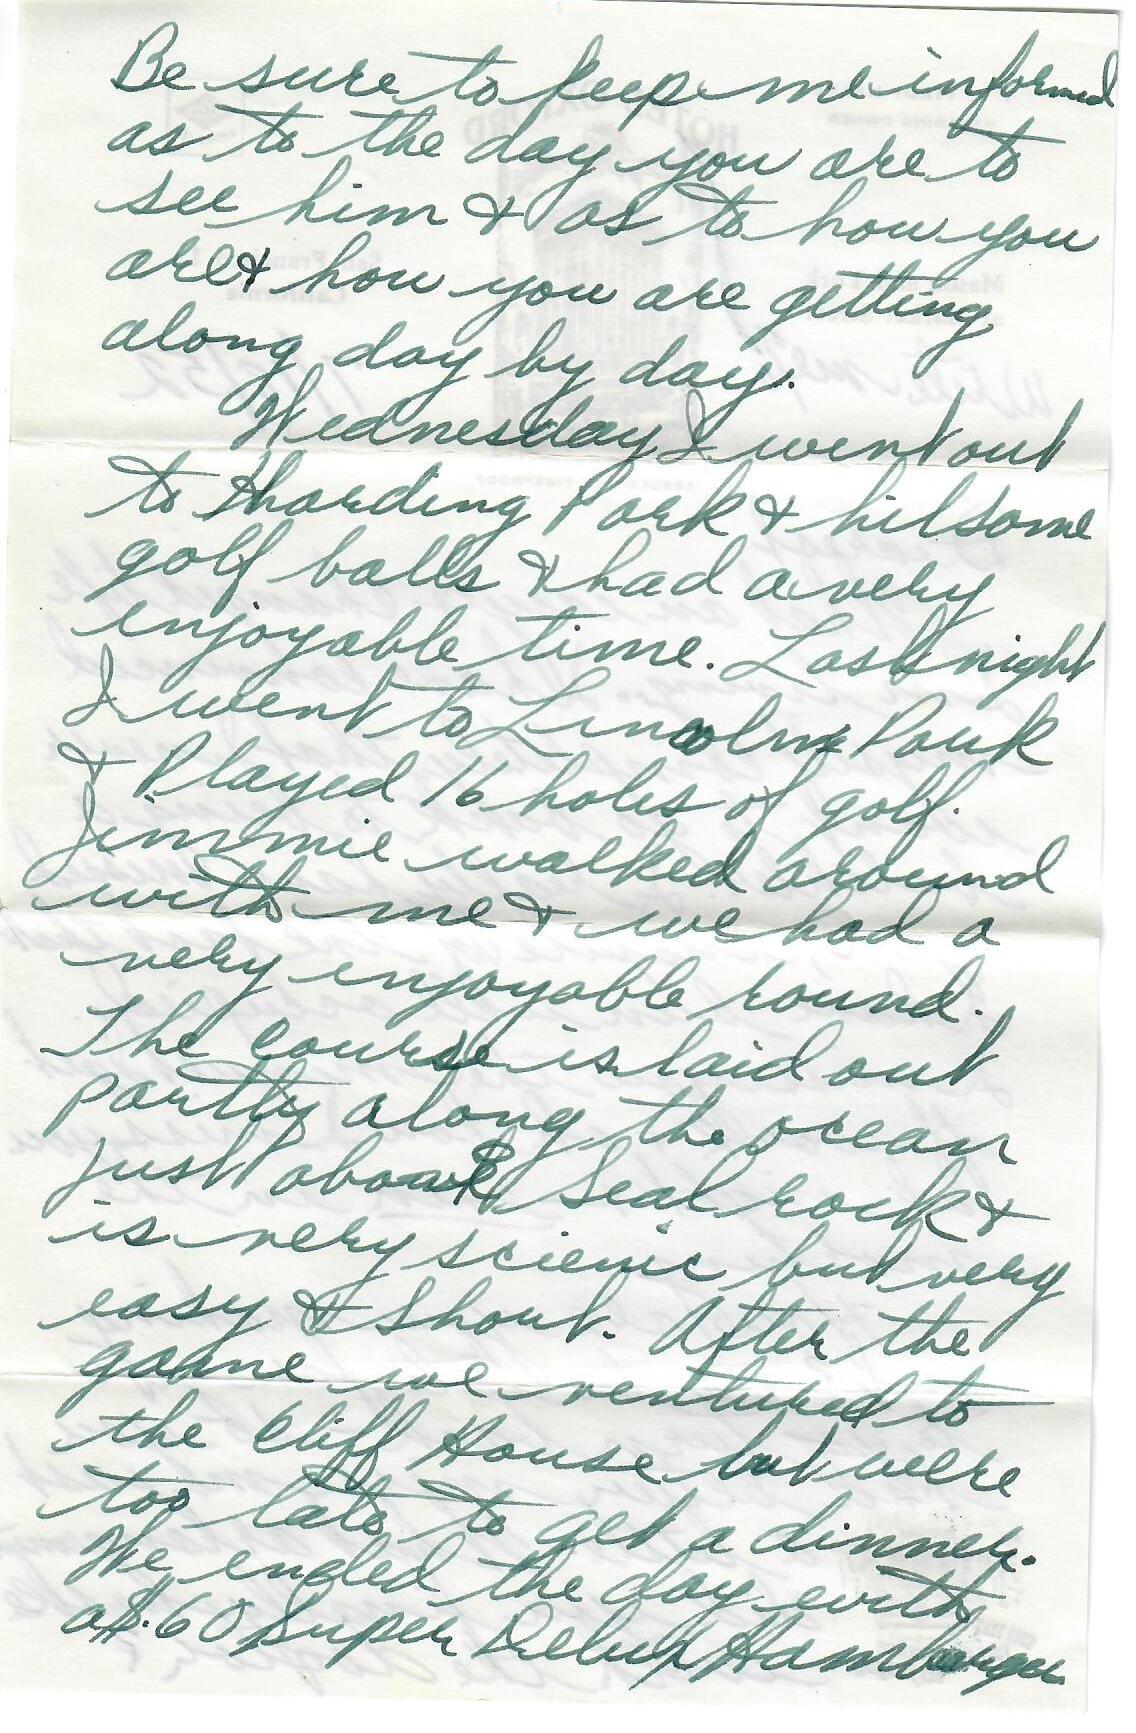 Be sure to keep me informed
as to the day you are to
see him & as to how you
are & how you are getting
along day by day.
Wednesday I went out
to Harding Park & hit some
golf balls & had a very
enjoyable time. Last night
I went to Lincoln Park
& Played 16 holes of golf.
Jimmie walked around
with me & we had a
very enjoyable round.
The course is laid out
partly along the ocean
just above Seal rock &
is very scienic but very
easy & short. After the
game we ventured to
the Cliff House but were
too late to get a dinner.
We ended the day with
a $.60 Super Delux Hamburger